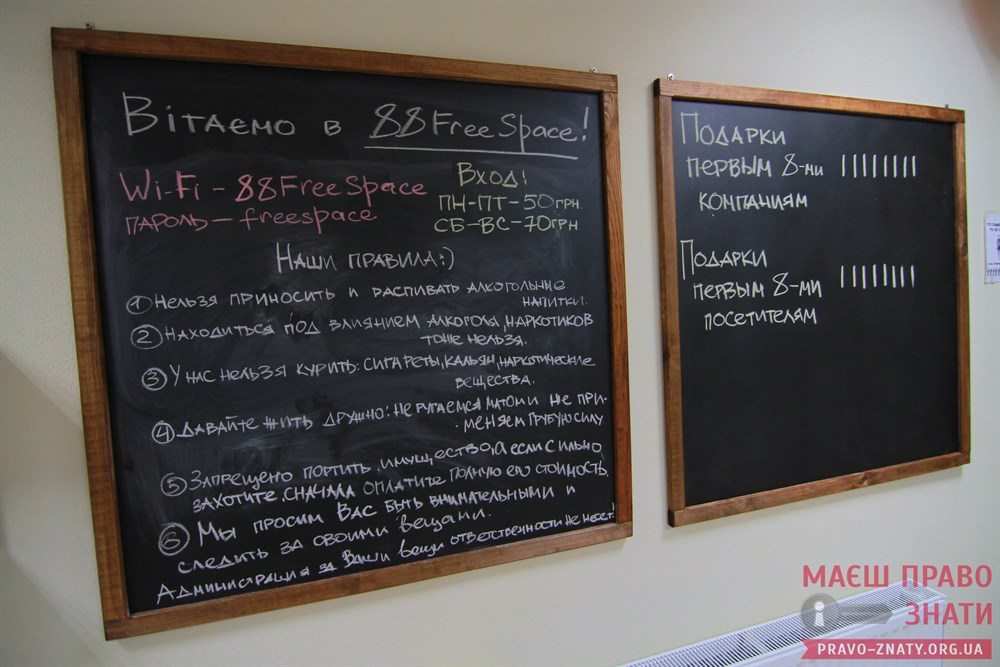 Вітаємо в 88FreeSpace!
Wi-Fi - 88FreeSpace
ПАРОЛЬ - freespace
Вход:
ПН-ПТ-50грн.
СБ-ВС-70грн
Наши правила:)
① Нельзя приносить и распивать алкогольные
напитки.
② Находиться под влиянием алкоголя, наркотиков
тоже нельзя.
③ У нас нельзя курить: сигареты, кальян, наркотические
вещества.
④ Давайте жить дружно: не ругаемся матом и не при-
меняем грубую силу.
⑤ Запрещено портить имущество, а если сильно
захотите, сначала оплатите полную его стоимость.
⑥ Мы просим Вас быть внимательными и
следить за своими вещами.
Администрация за Ваши вещи ответственности не несет!
Подарки
первым 8-ми
компаниям
Подарки
первым 8-ми
посетителям
МАЄШ ПРАВО
ЗНАТИ
PRAVO-ZNATY.ORG.UA